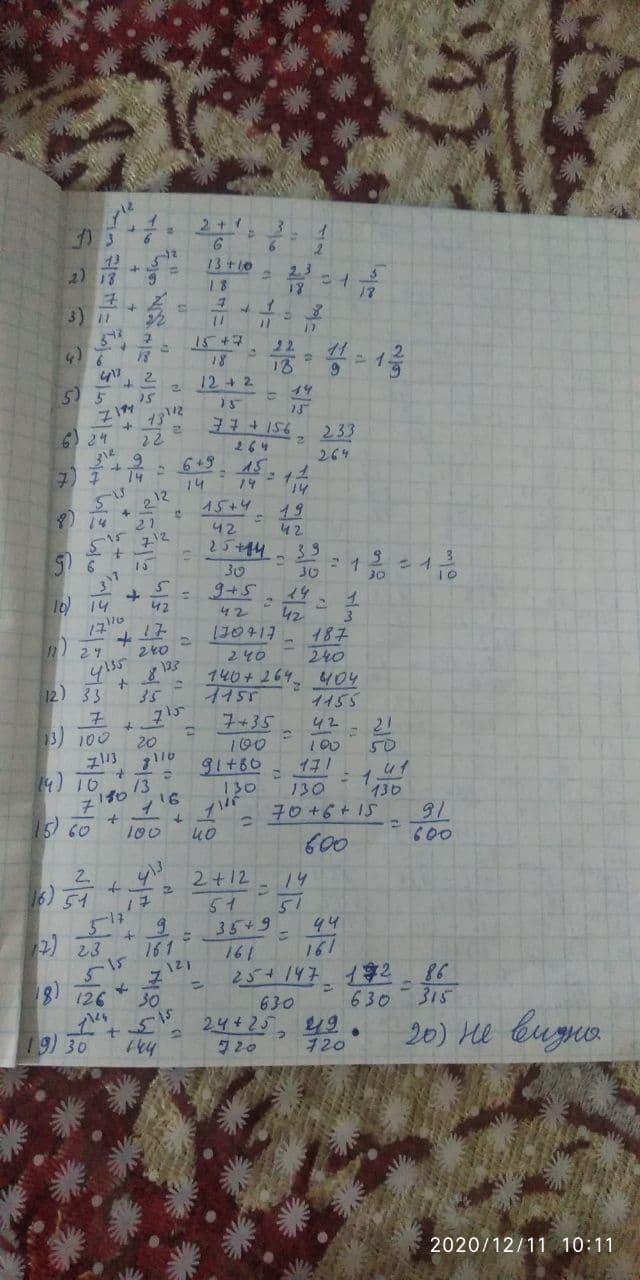 1) 1\2/3 + 1/6 = 2+1/6 = 3/6 = 1/2
2) 13/18 + 5\2/9 = 13+10/18 = 23/18 = 1 5/18
3) 7/11 + 2/22 = 7/11 + 1/11 = 8/11
4) 5\3/6 + 7/18 = 15+7/18 = 22/18 = 11/9 = 1 2/9
5) 4\3/5 + 2/15 = 12+2/15 = 14/15
6) 7\11/24 + 13\12/22 = 77+156/264 = 233/264
7) 3\2/7 + 9/14 = 6+9/14 = 15/14 = 1 1/14
8) 5\3/14 + 2\2/21 = 15+4/42 = 19/42
9) 5\5/6 + 7\2/15 = 25+14/30 = 39/30 = 1 9/30 = 1 3/10
10) 3\3/14 + 5/42 = 9+5/42 = 14/42 = 1/3
11) 17\10/24 + 17/240 = 170+17/240 = 187/240
12) 4\35/33 + 8\33/35 = 140+264/1155 = 404/1155
13) 7/100 + 7\5/20 = 7+35/100 = 42/100 = 21/50
14) 7\13/10 + 8\10/13 = 91+80/130 = 171/130 = 1 41/130
15) 7\10/60 + 1\6/100 + 1\15/40 = 70+6+15/600 = 91/600
16) 2/51 + 4\3/17 = 2+12/51 = 14/51
17) 5\7/23 + 9/161 = 35+9/161 = 44/161
18) 5\5/126 + 7\21/30 = 25+147/630 = 172/630 = 86/315
19) 1\24/30 + 5\5/144 = 24+25/720 = 49/720. 20) Не видно
2020/12/11 10:11